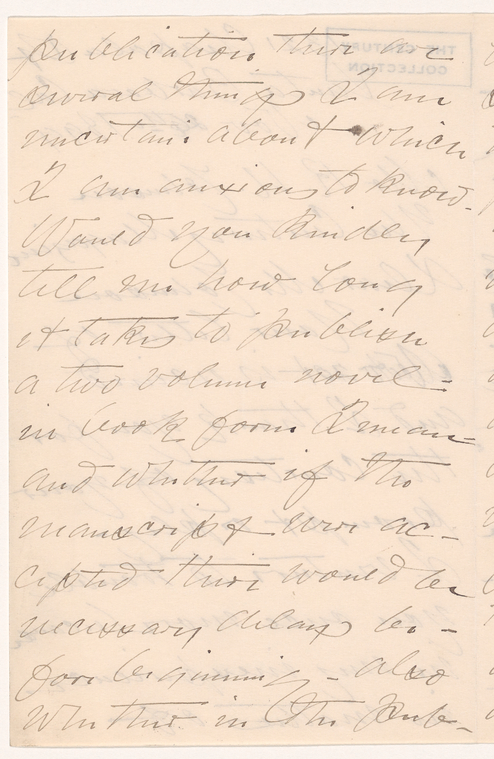 publication there are
several things I am
uncertain about & which
I am anxious to know.
Would you kindly
tell me how long
it takes to publish
a two volume novel -
in book form I mean -
and whether if the
manuscript were ac-
cepted there would be
necessary delay be-
fore beginning - also
whether in the pub-
THE CENTURY
COLLECTION